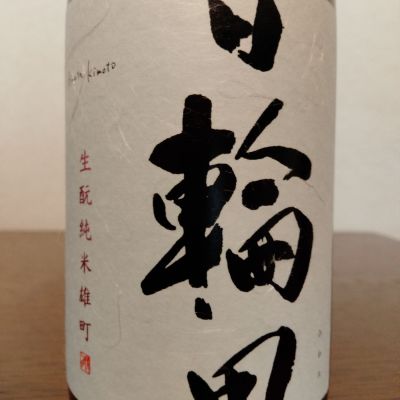 日輪田
生酛純米雄町
kimoto